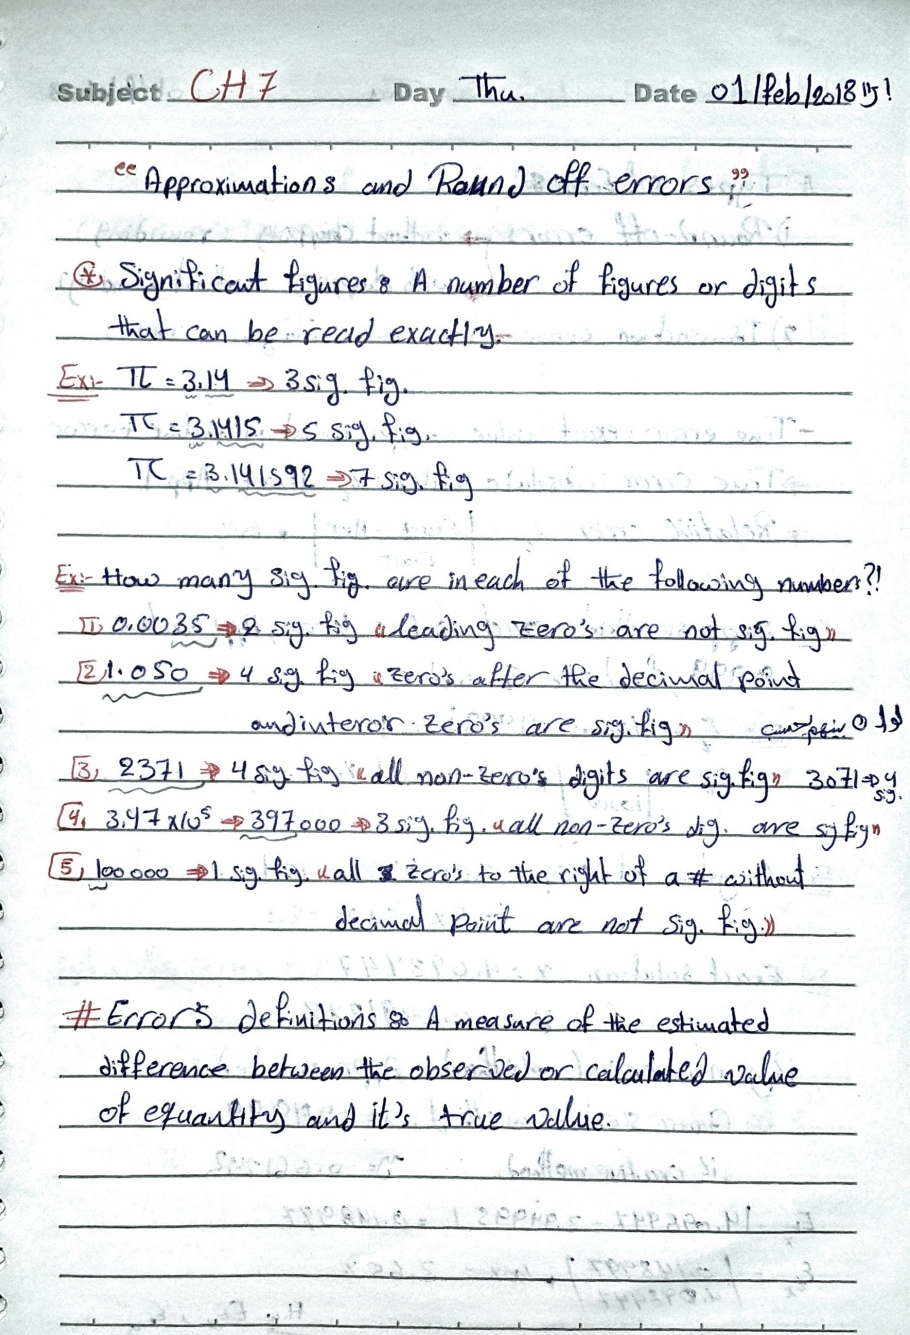 Subject CH7 Day Thu. Date 01/feb/2018
"Approximations and Round off errors"
* Significant figures: A number of figures or digits
that can be read exactly.
Ex:- π = 3.14 ⇒ 3 sig. fig.
π = 3.1415 ⇒ 5 sig. fig.
π = 3.141592 ⇒ 7 sig. fig
Ex:- How many sig. fig. are in each of the following numbers?!
1, 0.0035 ⇒ 2 sig. fig «leading zero's are not sig. fig»
2, 1.050 ⇒ 4 sig fig «zero's after the decimal point
and interor zero's are sig. fig»
3, 2371 ⇒ 4 sig. fig «all non-zero's digits are sig. fig» 3071 ⇒ 4
sig.
4, 3.97 x10⁵ ⇒ 397000 ⇒ 3 sig. fig. «all non-zero's dig. are sig fig»
5, 100000 ⇒ 1 sig. fig. «all zero's to the right of a # without
decimal point are not sig. fig.»
# Error's definitions: A measure of the estimated
difference between the observed or calculated value
of equantity and it's true value.